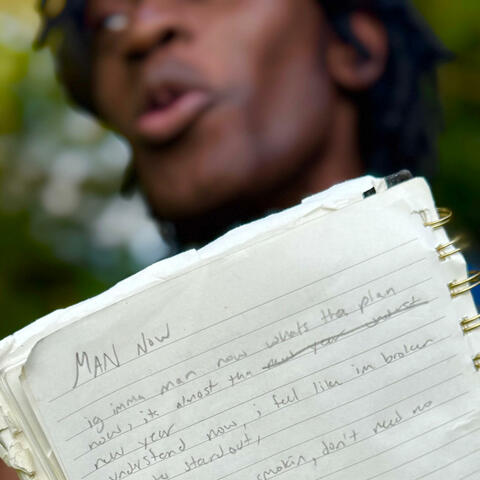 MAN NOW
ig imma man now whats tha plan
now, its almost tha new year
new year
understand now, i feel like im broken
standout,
smokin, don't need no